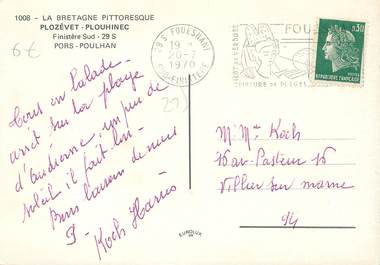 1008 - LA BRETAGNE PITTORESQUE
PLOZÉVET - PLOUHINEC
Finistère Sud - 29 S
PORS - POULHAN
6€
29 S FOUESNANT
19 H
20-7
1970
FINISTERE
FOU
CEINTURE DE PLAGES
0,30
REPUBLIQUE FRANÇAISE
29)
Tous en balade -
arrêt sur la plage
d'audierne, un peu de
soleil il fait bon -
Bons baisers de nous
5 -
Koch Harris
M. Mme Koch
16 av Pasteur 16
Villier sur marne
94
EUROLUX